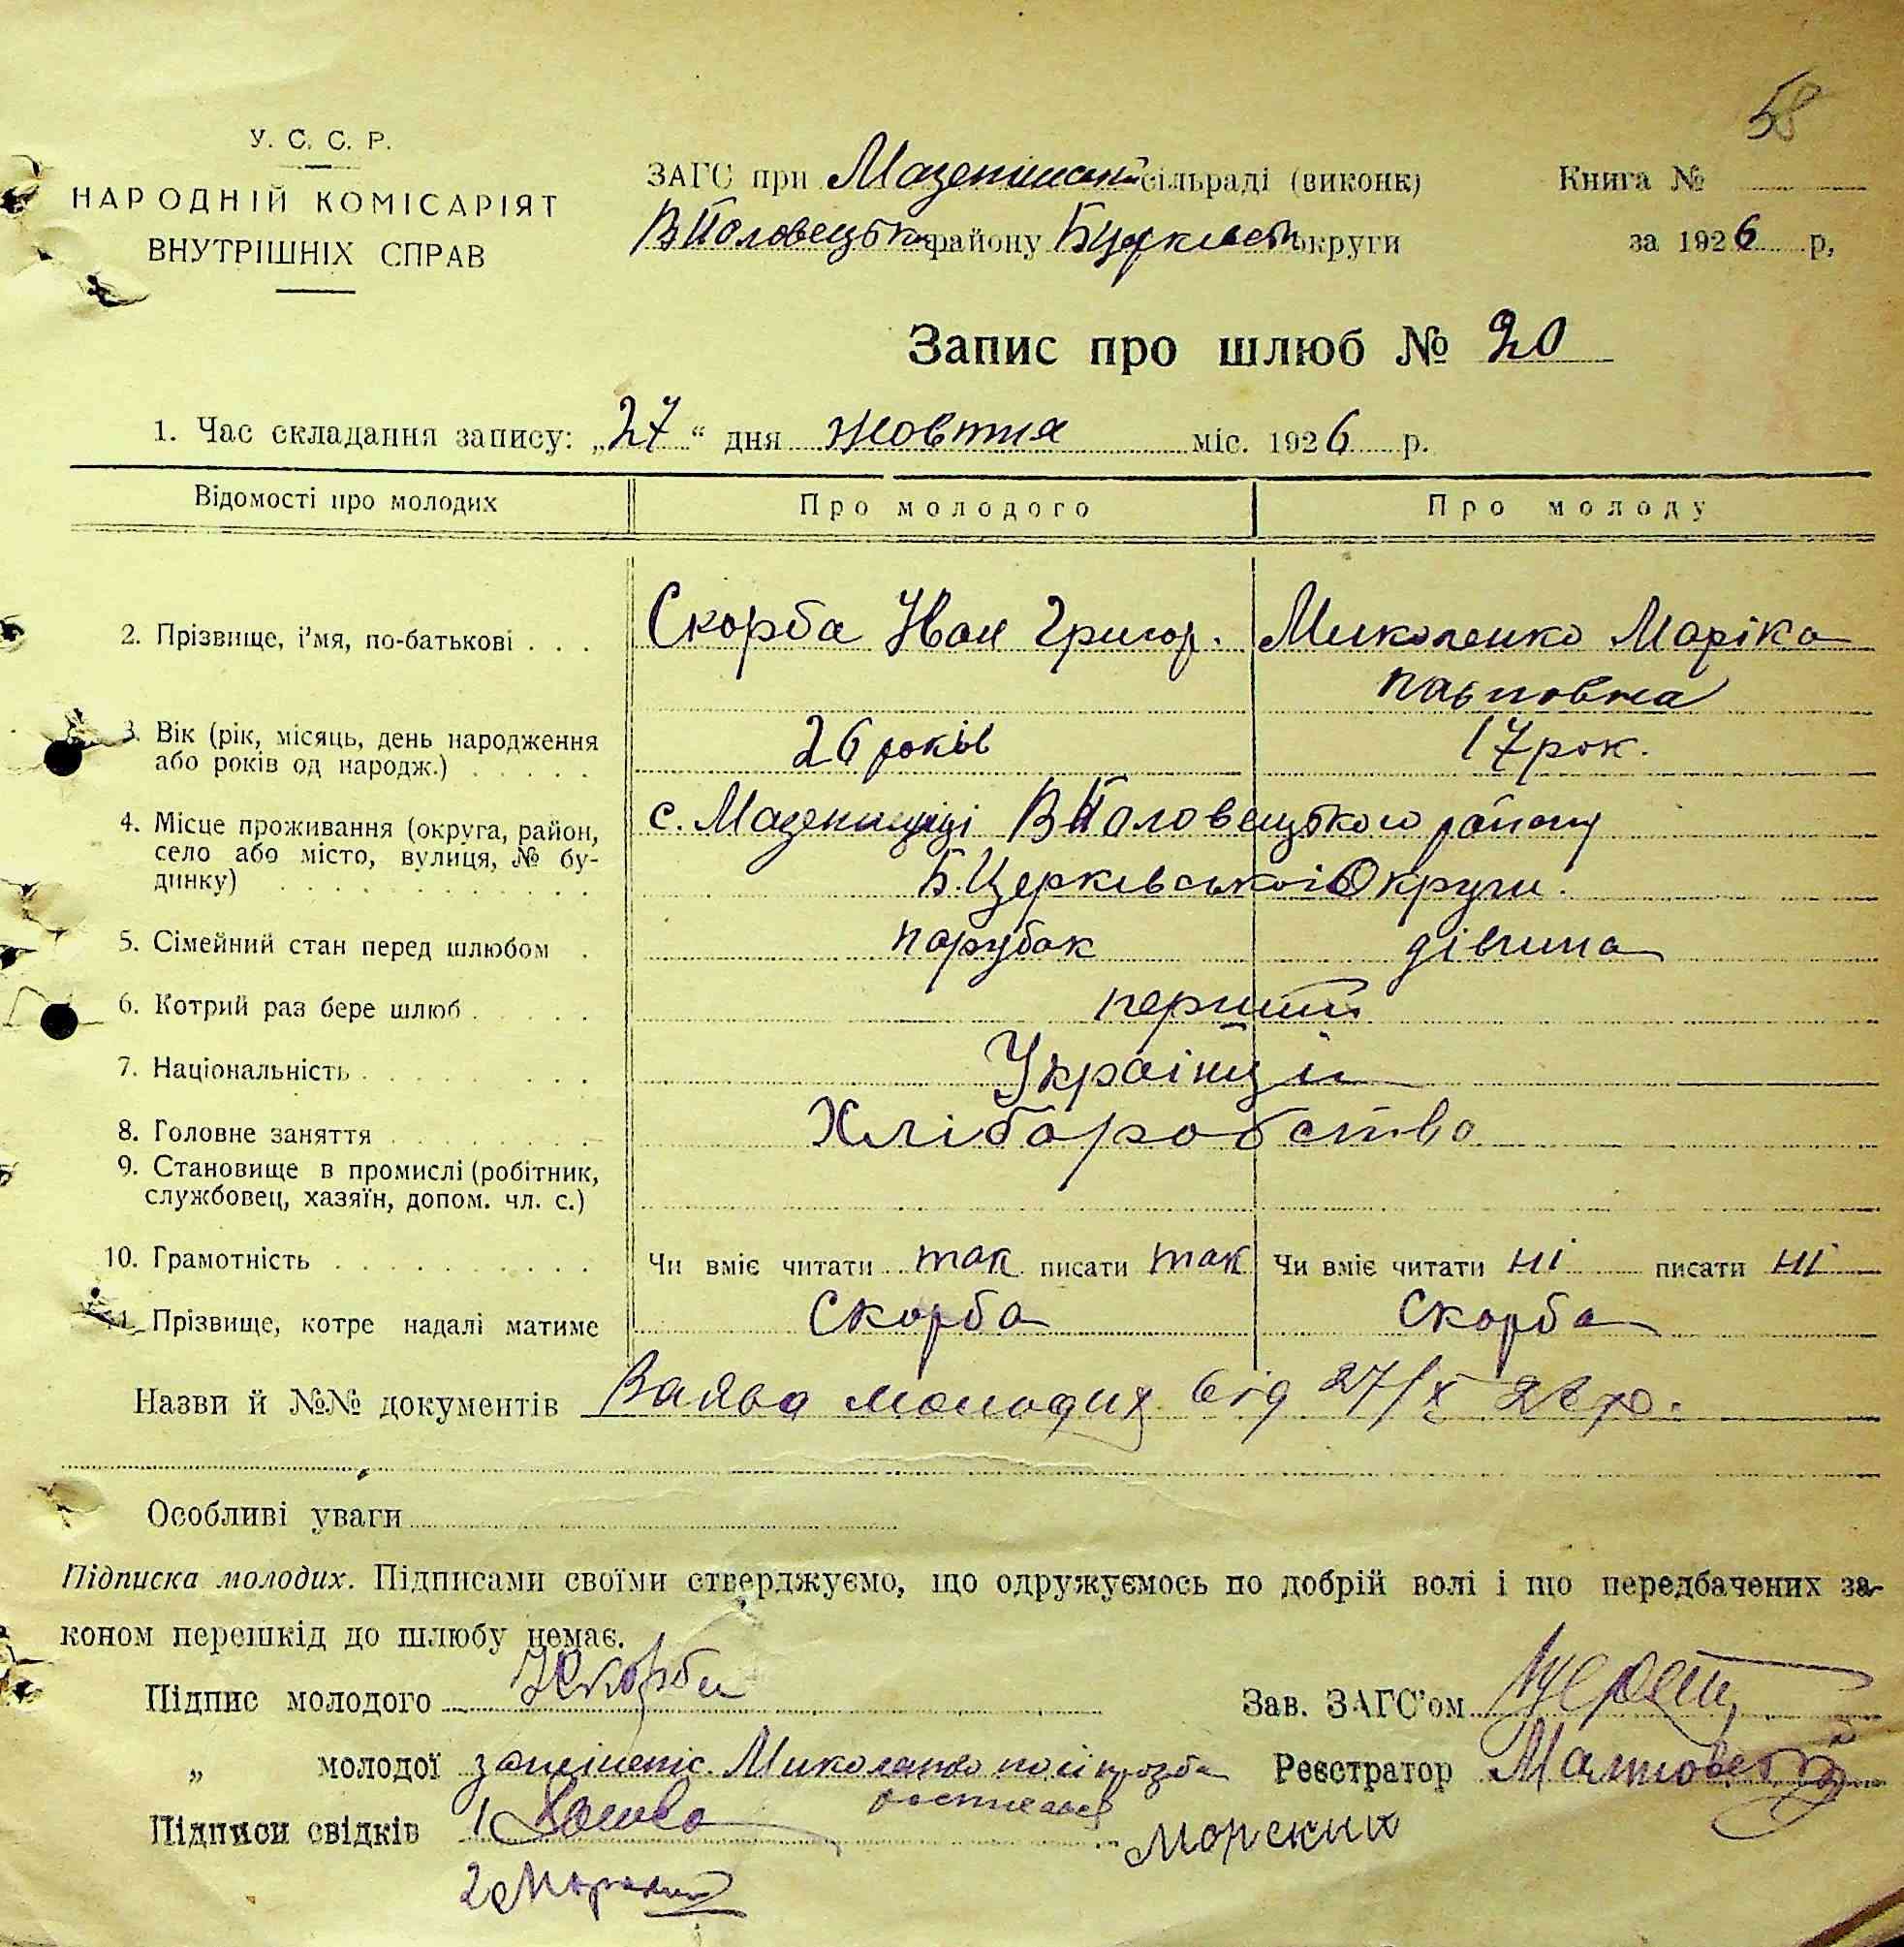 58
У. С. С. Р.
НАРОДНІЙ КОМІСАРІЯТ
ВНУТРІШНІХ СПРАВ
ЗАГС при сільраді (виконк)
В Половецьк району округи
Книга №
за 1926 р,
Запис про шлюб № 20
1. Час складання запису: „27“ дня жовтня міс. 1926 р.
Відомості про молодих Про молодого Про молоду
2. Прізвище, і'мя, по-батькові . . . Скорба Иван Григор. Миколенко Маріка
3. Вік (рік, місяць, день народження 26 років 17 рок.
або років од народж.) . . . . .
4. Місце проживання (округа, район, с. В Половецького району
село або місто, вулиця, № бу-
динку) . . . . . . . . . . . Б. Церківськоі Округи.
5. Сімейний стан перед шлюбом . парубок дівчина
6. Котрий раз бере шлюб . . . . перший
7. Національність . . . . . . . Украінці
8. Головне заняття . . . . . . . Хліборобство
9. Становище в промислі (робітник,
службовец, хазяїн, допом. чл. с.)
10. Грамотність . . . . . . . . . Чи вміє читати так писати так Чи вміє читати ні писати ні
11. Прізвище, котре надалі матиме Скорба Скорба
Назви й №№ документів Заява молодих від 27/X 26 р.
Особливі уваги
Підписка молодих. Підписами своїми стверджуємо, що одружуємось по добрій волі і що передбачених за-
коном перешкід до шлюбу немає.
Підпис молодого Скорба Зав. ЗАГС'ом
„ молодої Миколенко Реєстратор
Підписи свідків 1
Морский
2